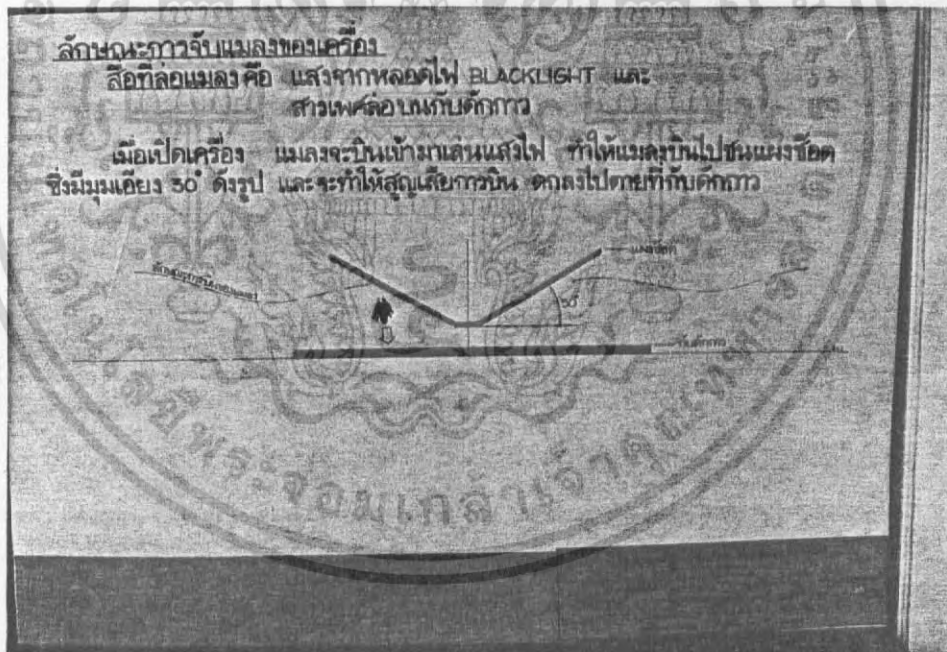 ลักษณะการจับแมลงของเครื่อง
สื่อที่ล่อแมลง คือ แสงจากหลอดไฟ BLACKLIGHT และ
สารเพศล่อบนกับดักกาว
เมื่อเปิดเครื่อง แมลงจะบินเข้ามาเล่นแสงไฟ ทำให้แมลงบินไปชนแผงช๊อต
ซึ่งมีมุมเอียง 30° ดังรูป และจะทำให้สูญเสียการบิน ตกลงไปตายที่กับดักกาว
แผงช๊อต
30°
กับดักกาว
พระจอมเกล้าเจ้าคุณทหาร